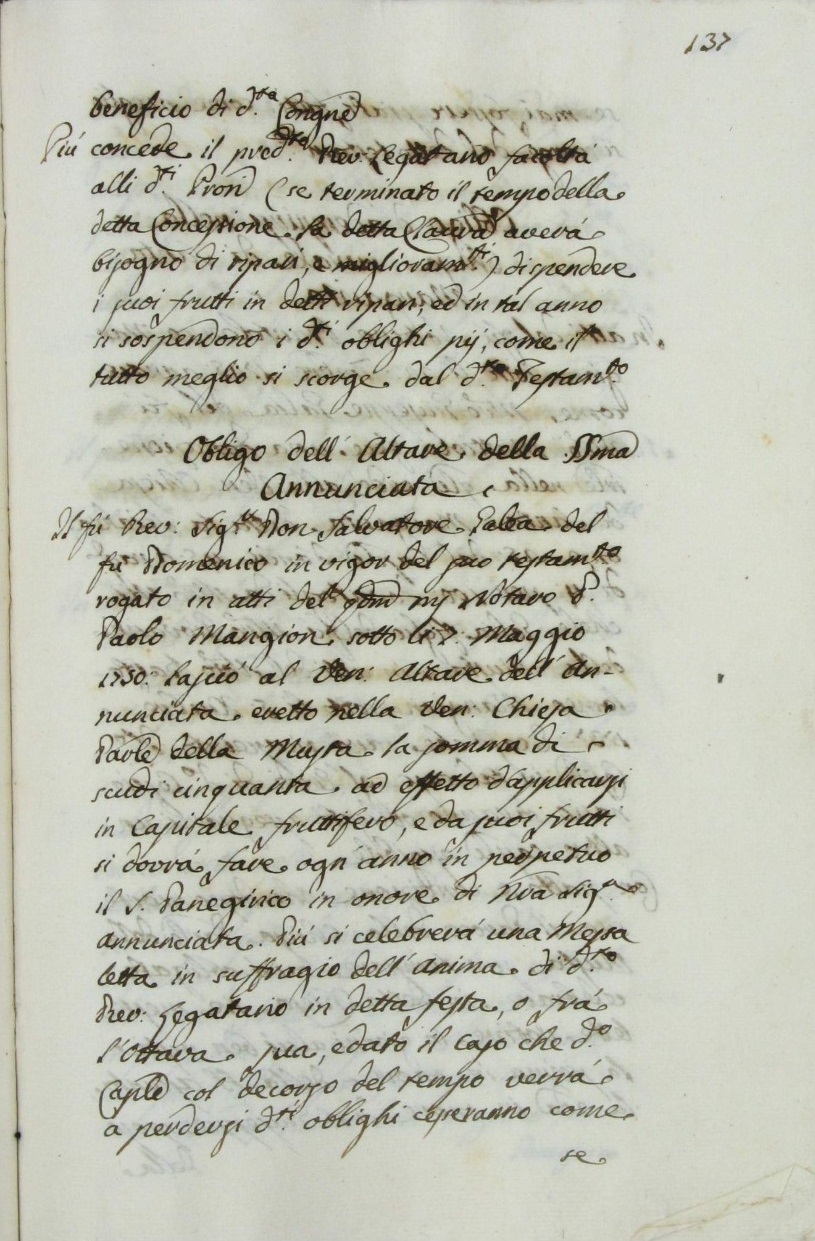 137
beneficio di d.ta Congne
Più concede il pred.to Rev: Legatario facoltà
alli d.ti Prori (se terminato il tempo della
detta Concessione la detta Clausa averà
bisogno di ripari, e miglioram.ti) di spendere
i suoi frutti in detti ripari, ed in tal anno
si sospendono i d.ti oblighi pij, come il
tutto meglio si scorge dal d.to Testam.to
Obligo dell' Altare della SSma
Annunciata
Il fù Rev: Sig.r Don Salvatore Galea del
fù Domenico in vigor del suo testam.to
rogato in atti del qdm mj Notaro D.
Paolo Mangion sotto li 7: Maggio
1750: lasciò al Ven: Altare dell' An-
nunciata eretto nella Ven: Chiesa
Parle della Musta la somma di
scudi cinquanta ad effetto d'applicarsi
in Capitale fruttifero, e da suoi frutti
si dovrà fare ogn' anno in perpetuo
il S. Panegirico in onore di Nra Sig.a
Annunciata. Più si celebrerà una Messa
letta in suffragio dell' anima di d.to
Rev: Legatario in detta festa, o frà
l'Ottava sua, e dato il caso che d.o
Caple col decorso del tempo verrà
a perdersi d.ti oblighi cesseranno come
se